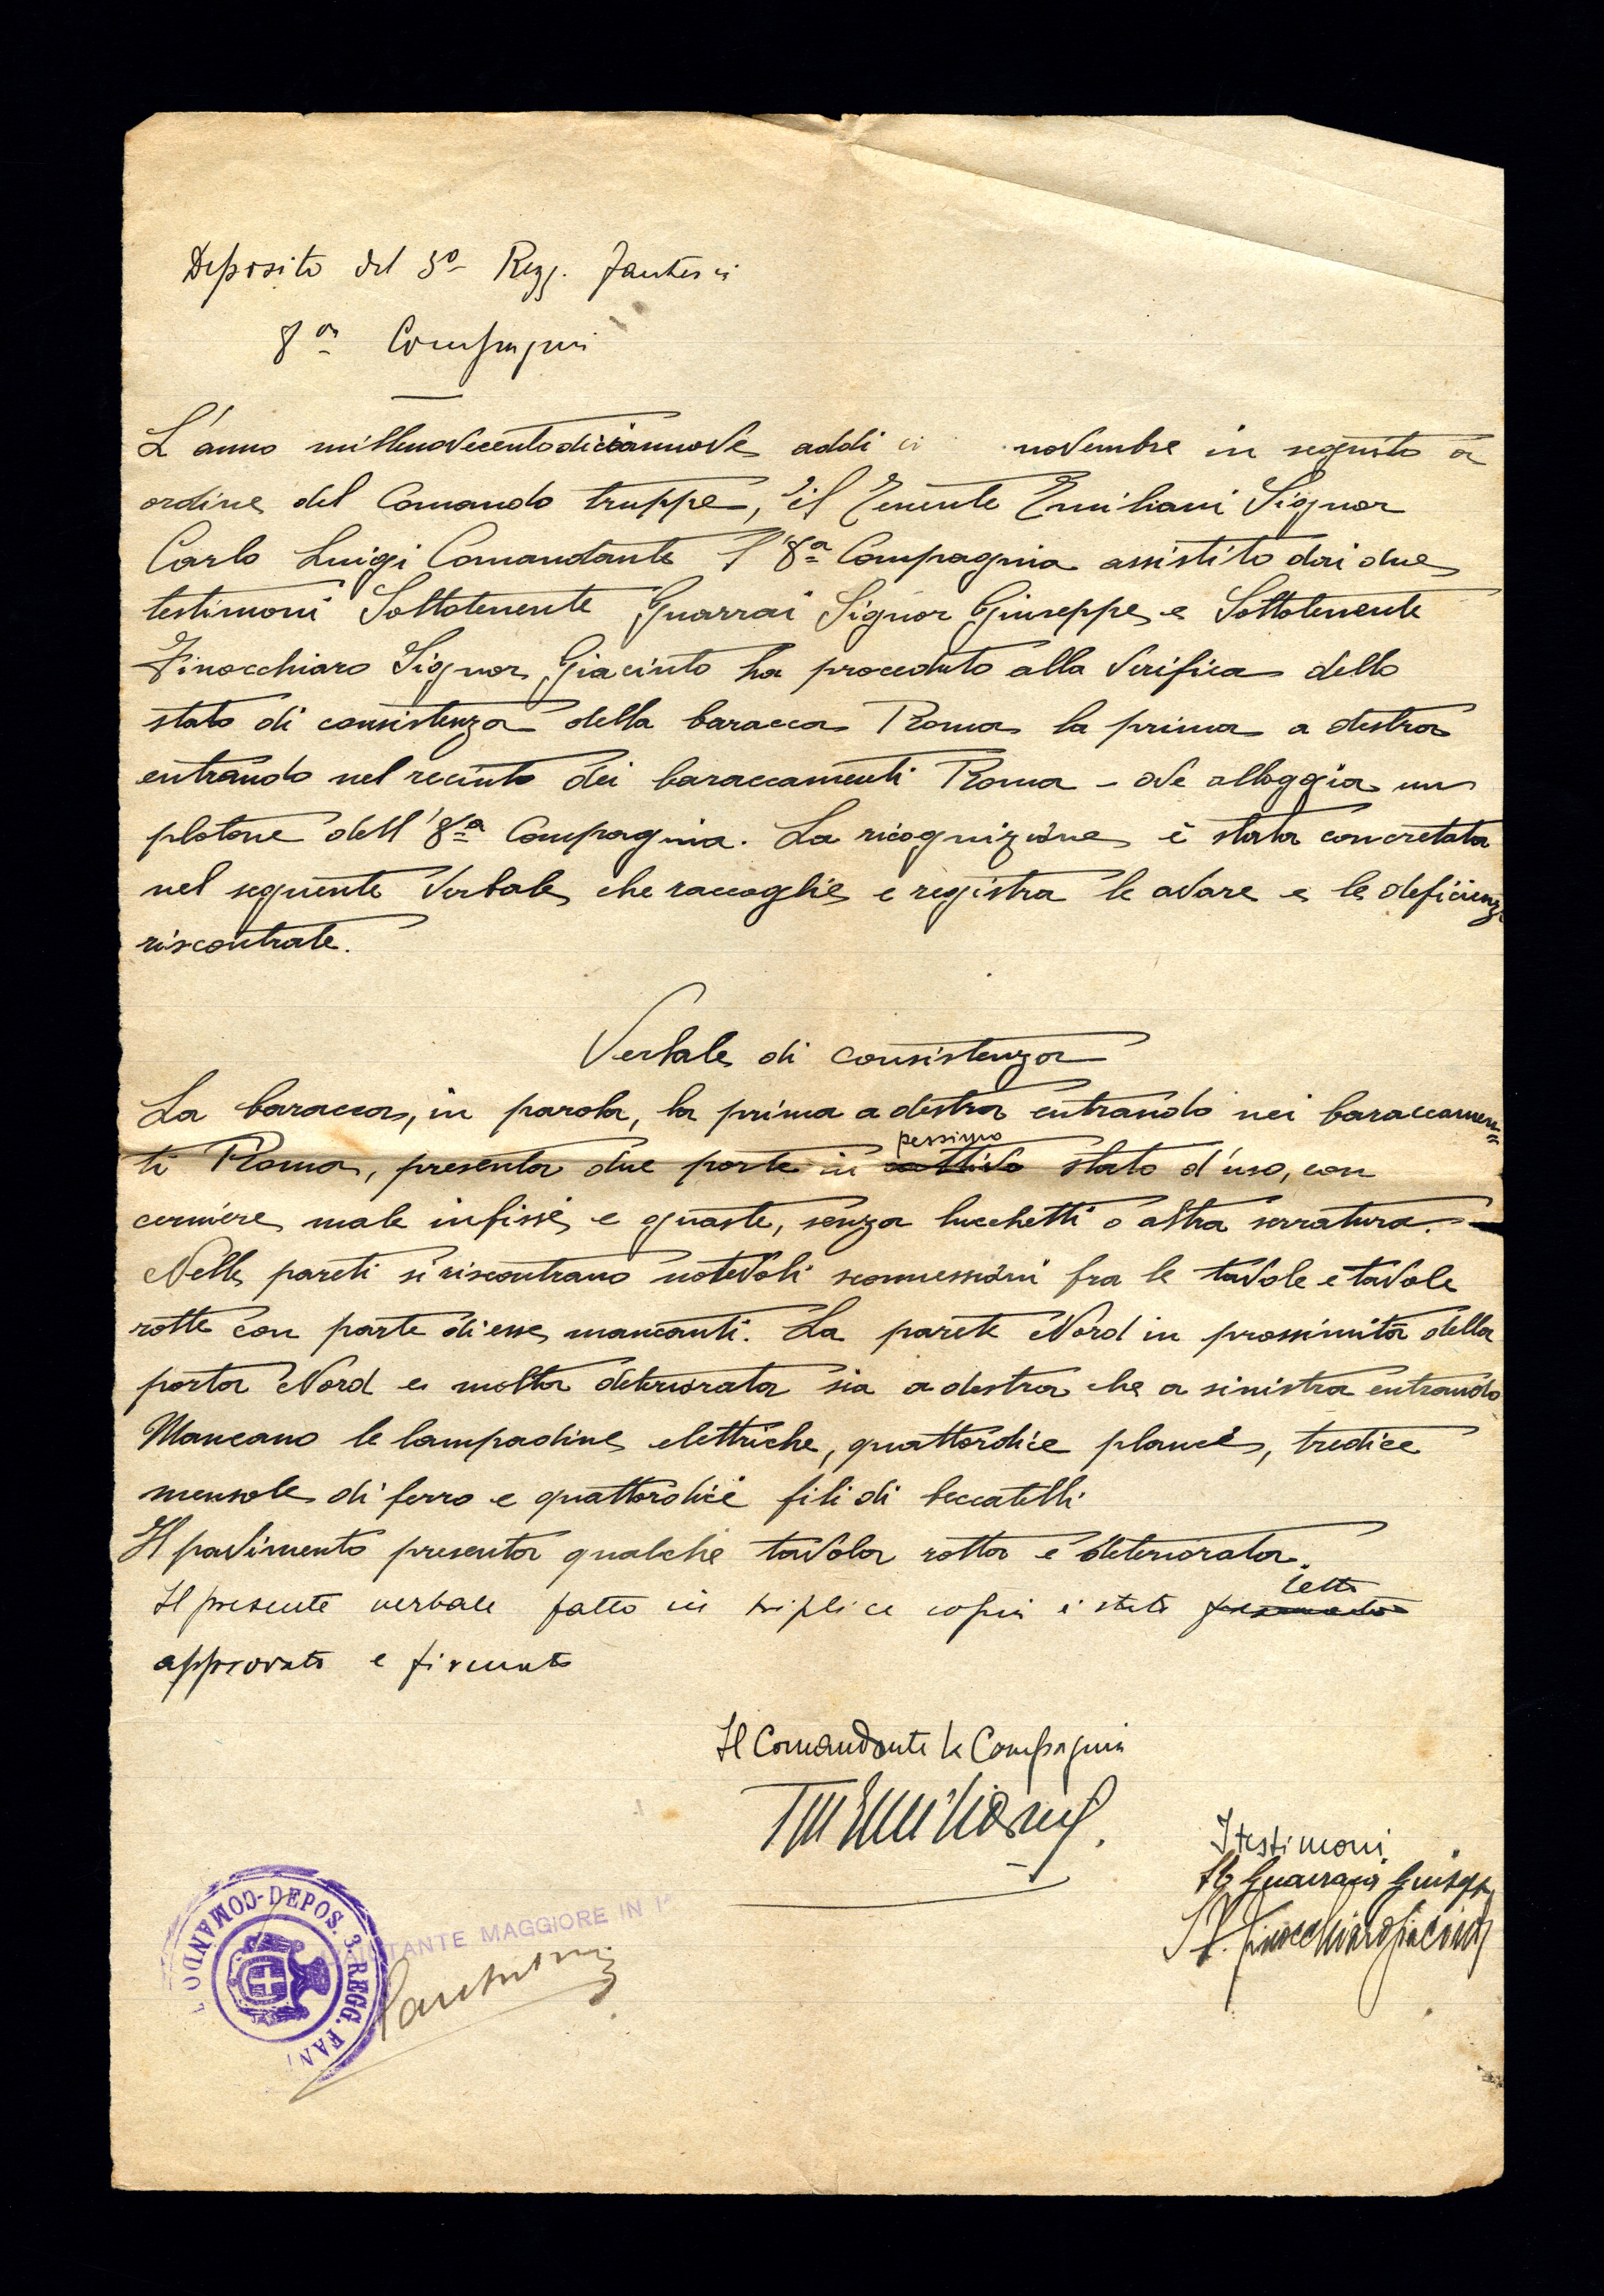 Deposito del 3º Regg. Fanteria
8ª Compagnia
L'anno millenovecentodiciannove addi novembre in seguito a
ordine del Comando truppe, il Tenente Emiliani Signor
Carlo Luigi Comandante l'8ª Compagnia assistito dai due
testimoni Sottotenente Guarrai Signor Giuseppe e Sottotenente
Finocchiaro Signor Giacinto ha proceduto alla verifica dello
stato di consistenza della baracca Roma la prima a destra
entrando nel recinto dei baraccamenti Roma - ove alloggia un
plotone dell'8ª Compagnia. La ricognizione è stata concretata
nel seguente verbale che raccoglie e registra le avare e le deficienze
riscontrate.
Verbale di consistenza
La baracca, in parola, la prima a destra entrando nei baraccamen=
ti Roma, presenta due porte in cattivo pessimo stato d'uso, con
cerniere male infisse e guaste, senza lucchetti o altra serratura.
Nelle pareti si riscontrano notevoli sconnessioni fra le tavole e tavole
rotte con parte di esse mancanti. La parete Nord in prossimità della
porta Nord e molto deteriorata sia a destra che a sinistra entrando
Mancano le lampadine elettriche, quattordice plance, tredice
mensole di ferro e quattordice fili di beccatelli
Il pavimento presenta qualche tavola rotta e deteriorata.
Il presente verbale fatto in triplice copia è stato letto
approvato e firmato
Il Comandante la Compagnia
Tn Emiliani
I testimoni
St Guarrai Giuseppe
St. Finocchiaro Giacinto
COMANDO-DEPOS. 3. REGG. FANT
AIUTANTE MAGGIORE IN 1ª